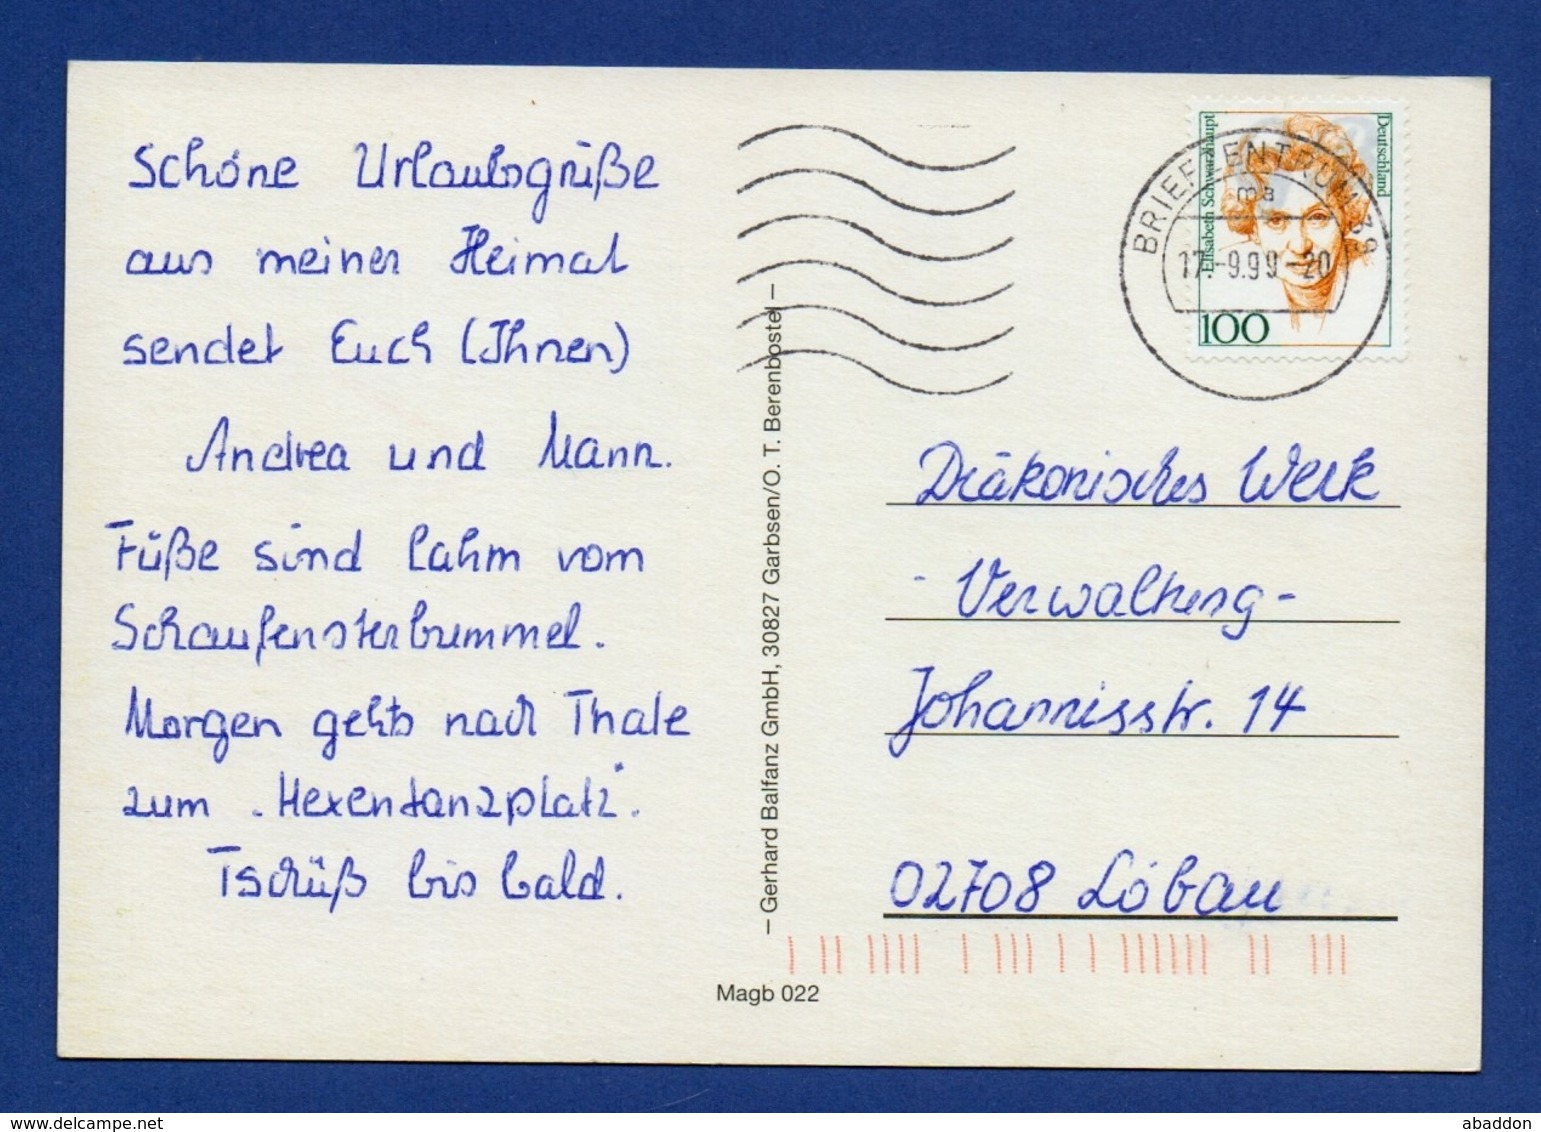 Schöne Urlaubsgrüße
aus meiner Heimat
sendet Euch (Ihnen)
Andrea und Mann.
Füße sind lahm vom
Schaufensterbummel.
Morgen gehts nach Thale
zum „Hexentanzplatz".
Tschüß bis bald.
– Gerhard Balfanz GmbH, 30827 Garbsen/O. T. Berenbostel –
Magb 022
Elisabeth Schwarzhaupt
Deutschland
100
BRIEFZENTRUM 39
ma
17.-9.99-20
Diakonisches Werk
- Verwaltung -
Johannisstr. 14
02708 Löbau
www.delcampe.net
abaddon